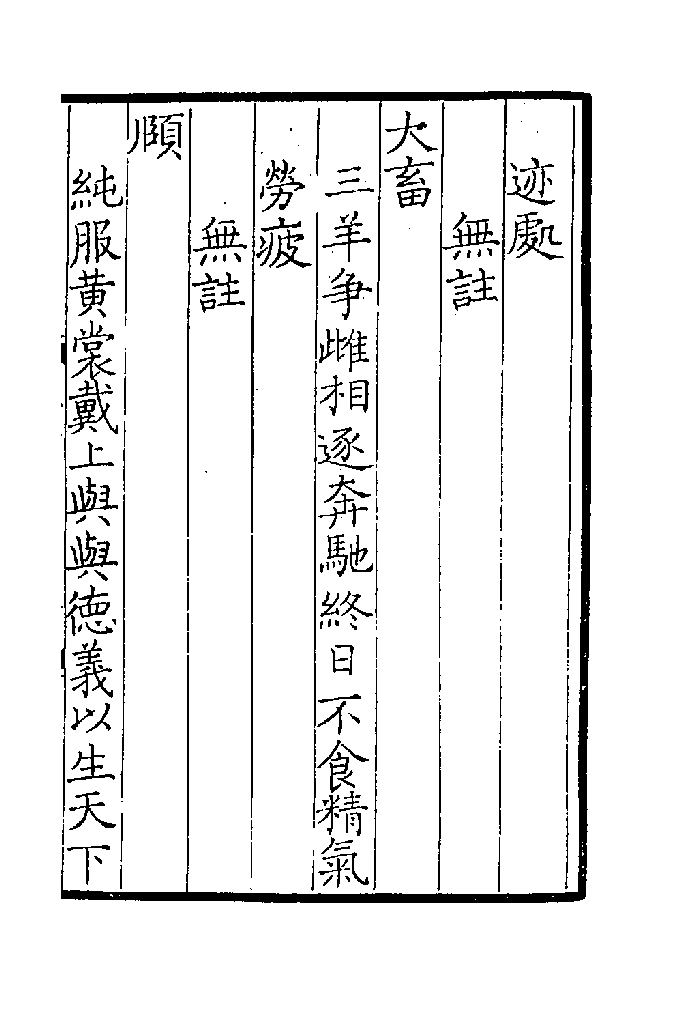 迹處
無註
大畜
三羊争雌相逐奔馳終日不食精氣
勞疲
無註
頤
純服黄裳戴上與與德義以生天下